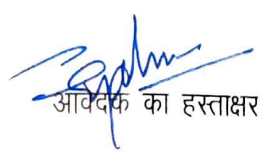 आवेदक का हस्ताक्षर